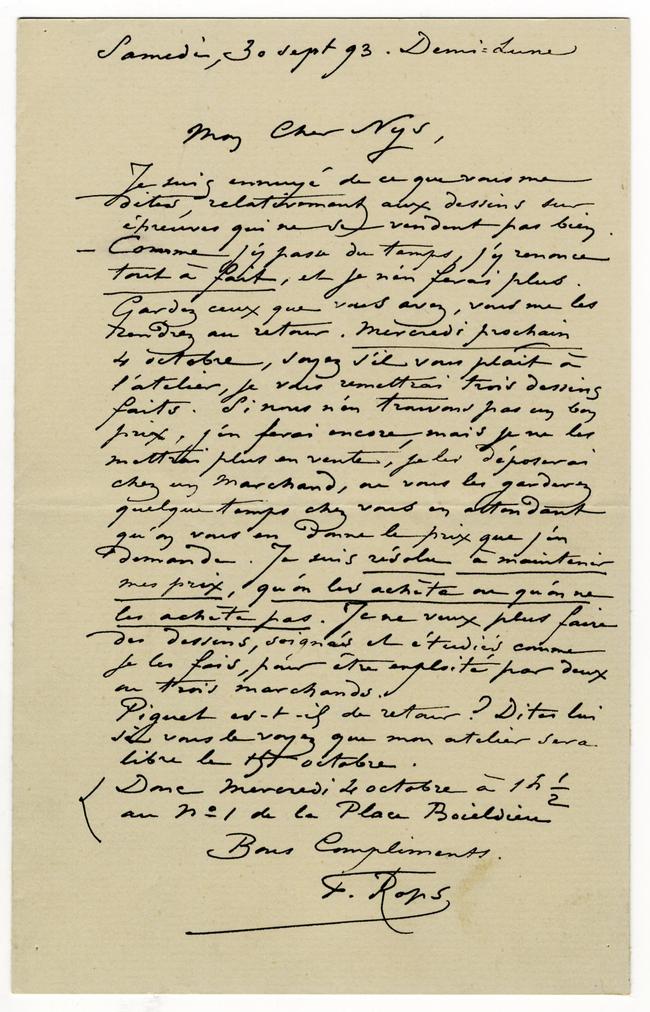 Samedi, 30 sept 93. Demi-Lune
Mon Cher Nys,
Je suis ennuyé de ce que vous me
dites, relativement aux dessins sur
épreuves qui ne se vendent pas bien.
– Comme j'y passe du temps, j'y renonce
tout à fait, et je n'en ferai plus.
Gardez ceux que vous avez, vous me les
rendrez au retour. Mercredi prochain
4 octobre, soyez s'il vous plait à
l'atelier, je vous remettrai trois dessins
faits. Si nous n'en trouvons pas un bon
prix, j'en ferai encore, mais je ne les
mettrai plus en vente, je les déposerai
chez un marchand, ou vous les garderez
quelque temps chez vous en attendant
qu'on vous en donne le prix que j'en
demande. Je suis résolu à maintenir
mes prix, qu'on les achète ou qu'on ne
les achète pas. Je ne veux plus faire
des dessins, soignés et étudiés comme
je les fais, pour être exploité par deux
ou trois marchands.
Piguet es-t-il de retour? Dites lui
si vous le voyez que mon atelier sera
libre le octobre.
Donc Mercredi 4 octobre à 1h ½
au Nº 1 de la Place Boieldieu
Bons Compliments.
F. Rops